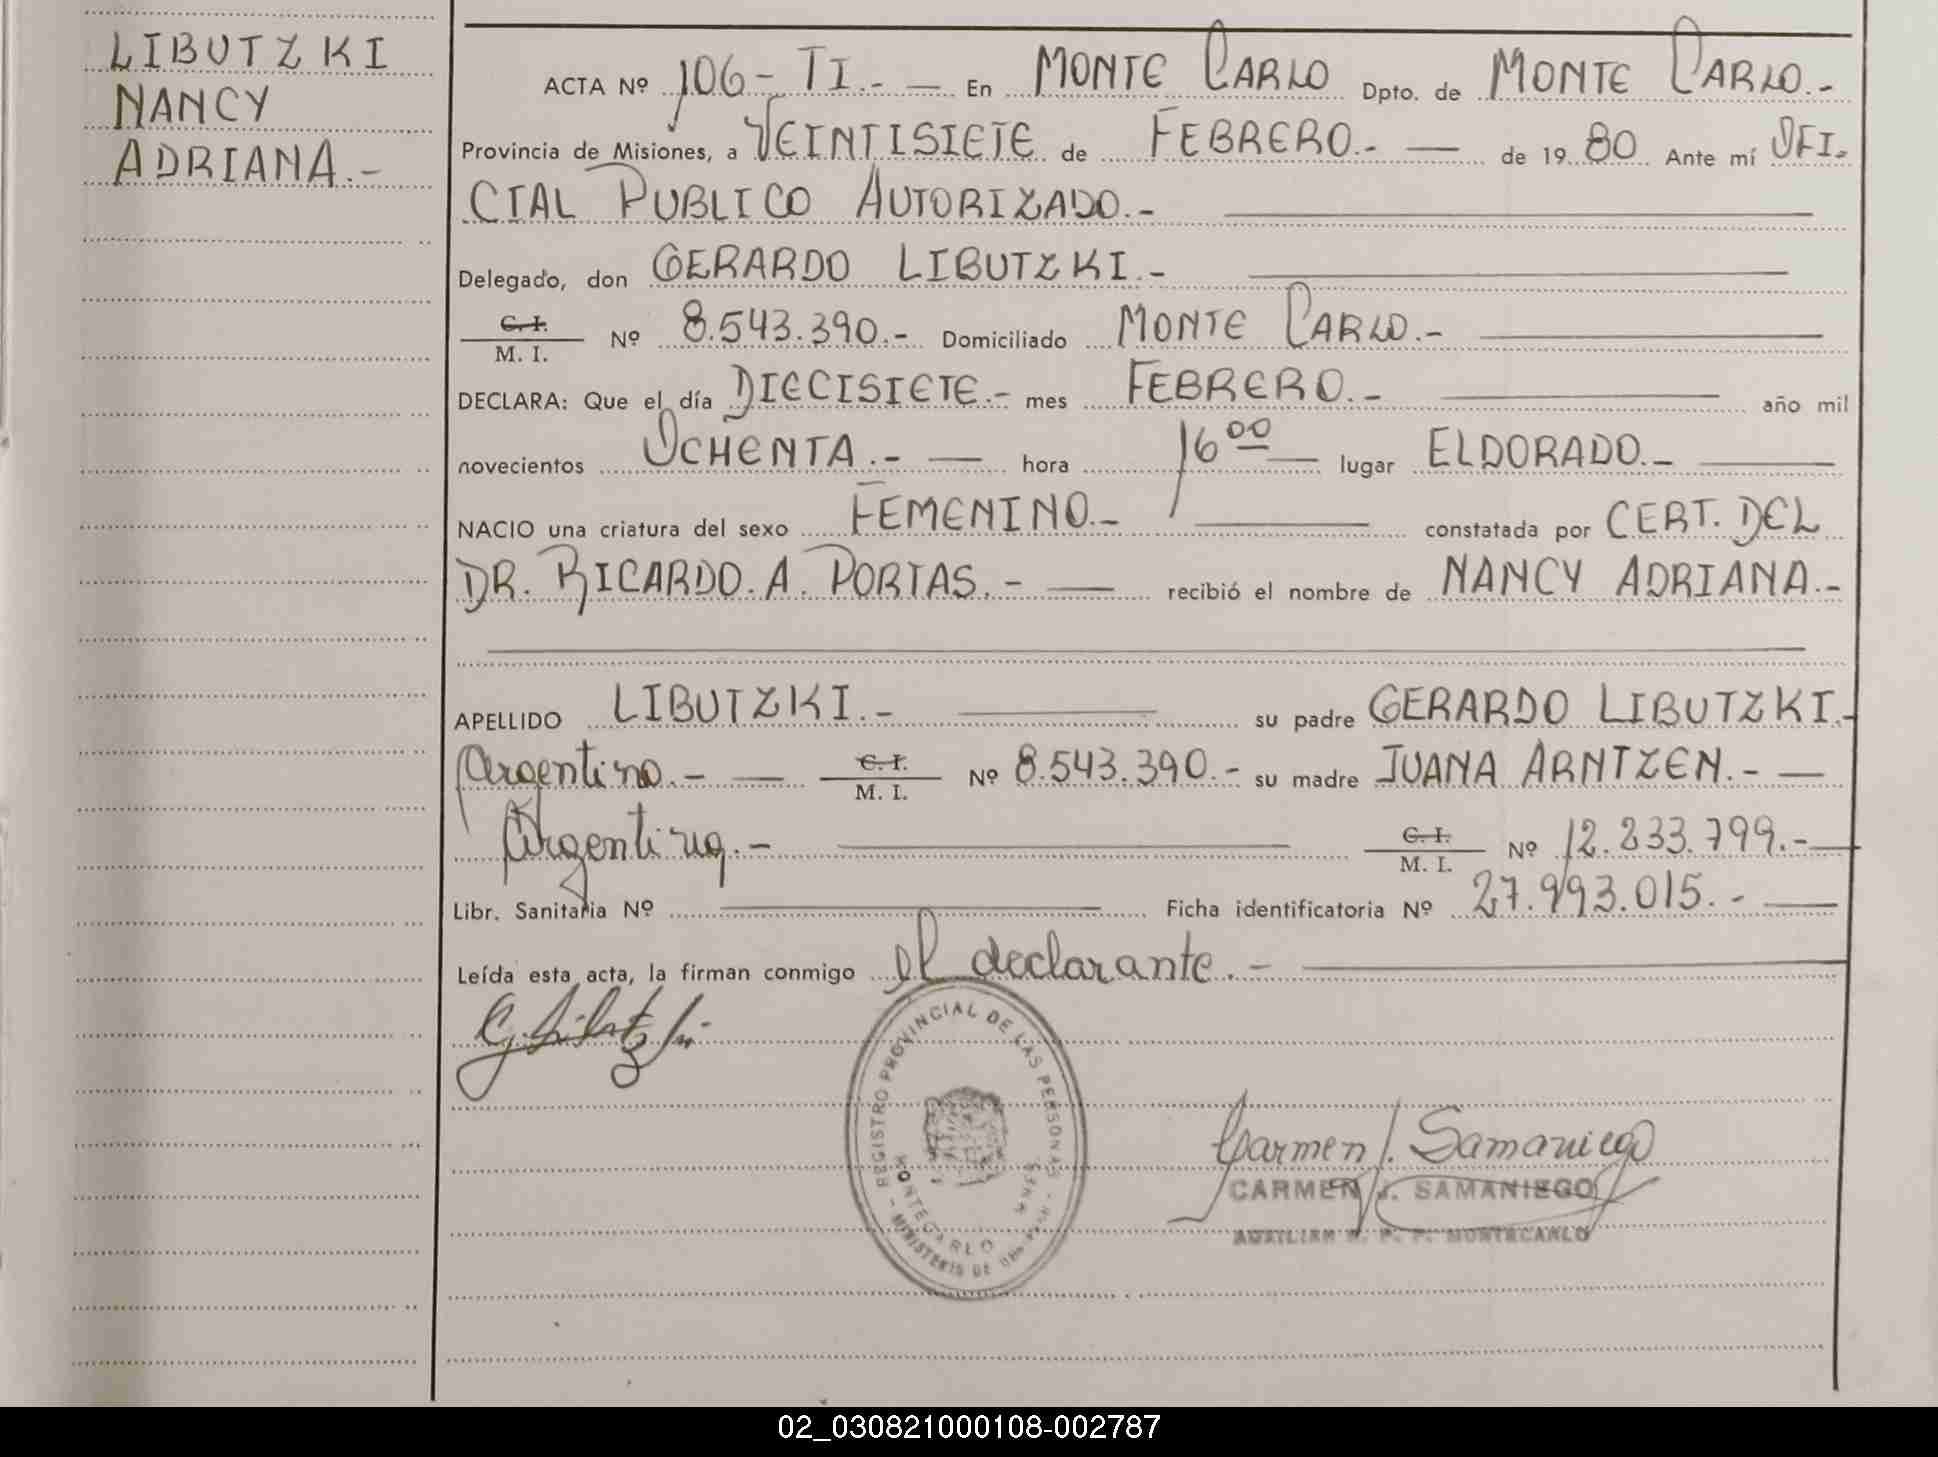 LIBUTZKI
NANCY
ADRIANA.-
ACTA Nº 106-TI.- — En MONTE CARLO Dpto. de MONTE CARLO.-
Provincia de Misiones, a VEINTISIETE de FEBRERO.- — de 19 80 Ante mí OFI-
CIAL PUBLICO AUTORIZADO.-
Delegado, don GERARDO LIBUTZKI.-
C. I.
M. I. Nº 8.543.390.- Domiciliado MONTE CARLO.-
DECLARA: Que el día DIECISIETE.- mes FEBRERO.- año mil
novecientos OCHENTA.- — hora 16 00 — lugar ELDORADO.-
NACIO una criatura del sexo FEMENINO.- constatada por CERT. DEL
DR. RICARDO. A. PORTAS.- — recibió el nombre de NANCY ADRIANA.-
APELLIDO LIBUTZKI.- su padre GERARDO LIBUTZKI.-
Argentino.- — C. I. M. I. Nº 8.543.390.- su madre JUANA ARNTZEN.- —
Argentina.- C. I. M. I. Nº 12.233.799.-
Libr. Sanitaria Nº Ficha identificatoria Nº 27.993.015.-
Leída esta acta, la firman conmigo el declarante.-
G. Libutzki
REGISTRO PROVINCIAL DE LAS PERSONAS
MONTECARLO
MINISTERIO DE
Carmen J. Samaniego
CARMEN J. SAMANIEGO
AUXILIAR R. P. P. MONTECARLO
02_030821000108-002787